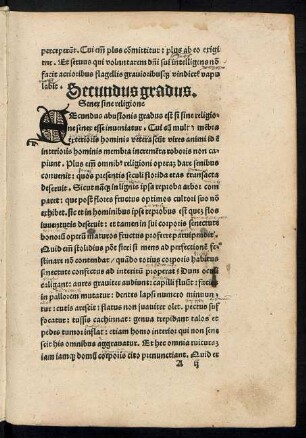 perceperūt. Cui em̄ plus cōmittitur : plus ab eo exigi⸗
tur. Et seruus qui voluntatem dn̄i sui intelligens nō
facit acrioribus flagellis grauioribusq̨ vindicte vapu
labit.
Secundus gradus.
Senex sine religione
SEcundus abusionis gradus est si sine religio⸗
ne senex esse inueniatur. Cui cū mēbra
exterioris hominis veterascūt vires animi id ē
interioris hominis membra incremēta roboris non ca⸗
piunt. Plus em̄ omnibꝰ religioni operaz̄ dare senibus
conuenit : quos presentis seculi florida etas transacta
deseruit. Sicut in lignis ipsa reproba arbor com⸗
paret : que post flores fructus optimos cultori suo nō
exhibet. sic et in hominibus ipse reprobus est quez flos
iuuentutis deseruit : et tamen in sui corporis senectute
bonorū operū maturos fructus proferre paruipēdit.
Quid em̄ stolidius pōt fieri si mens ad perfectionē fe⸗
stinare nō contendat / quādo totius corporis habitus
senectute confectus ad interitū properat : Dum oculi
caligant : aures grauiter audiunt : capilli fluūt : facies
in pallorem mutatur : dentes lapsi numero minuun⸗
tur : cutis arescit : flatus non suauiter olet. pectus suf
focatur : tussis cachinnat : genua trepidant talos et
pedes tumor inflat : etiam homo interior qui non sene⸗
scit his omnibus aggrauatur. Et hec omnia ruituraz
iam iamq̨ domū corporis cito pronunciant. Quid er
A ij